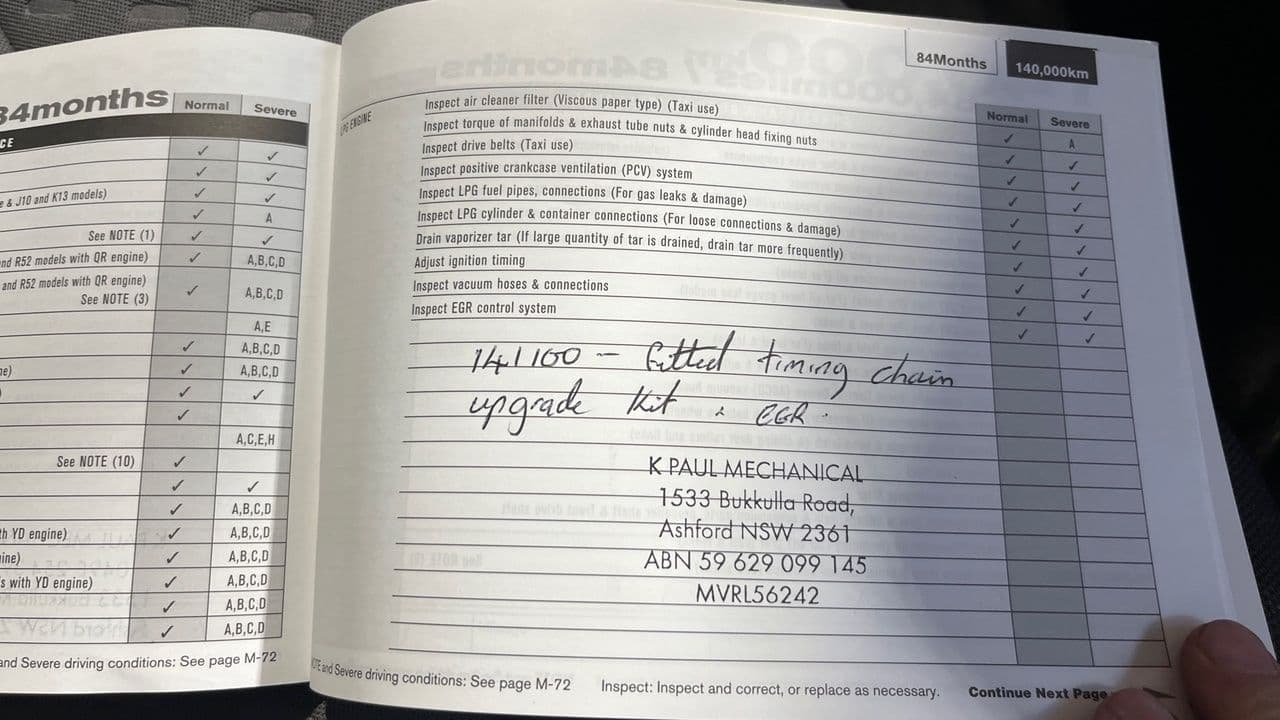 84months
Normal Severe
CE
✓ ✓
✓ ✓
e & J10 and K13 models) ✓ ✓
✓ A
See NOTE (1) ✓ ✓
nd R52 models with QR engine) ✓ A,B,C,D
and R52 models with QR engine)
See NOTE (3) ✓ A,B,C,D
A,E
✓ A,B,C,D
ne) ✓ A,B,C,D
) ✓ ✓
✓
A,C,E,H
See NOTE (10) ✓
✓ ✓
✓ A,B,C,D
th YD engine) ✓ A,B,C,D
ine) ✓ A,B,C,D
s with YD engine) ✓ A,B,C,D
✓ A,B,C,D
✓ A,B,C,D
and Severe driving conditions: See page M-72
84Months 140,000km
LPG ENGINE
Normal Severe
Inspect air cleaner filter (Viscous paper type) (Taxi use) ✓ A
Inspect torque of manifolds & exhaust tube nuts & cylinder head fixing nuts ✓ ✓
Inspect drive belts (Taxi use) ✓ ✓
Inspect positive crankcase ventilation (PCV) system ✓ ✓
Inspect LPG fuel pipes, connections (For gas leaks & damage) ✓ ✓
Inspect LPG cylinder & container connections (For loose connections & damage) ✓ ✓
Drain vaporizer tar (If large quantity of tar is drained, drain tar more frequently) ✓ ✓
Adjust ignition timing ✓ ✓
Inspect vacuum hoses & connections ✓ ✓
Inspect EGR control system ✓ ✓
141100 - fitted timing chain
upgrade kit & EGR.
K PAUL MECHANICAL
1533 Bukkulla Road,
Ashford NSW 2361
ABN 59 629 099 145
MVRL56242
NOTE and Severe driving conditions: See page M-72 Inspect: Inspect and correct, or replace as necessary. Continue Next Page